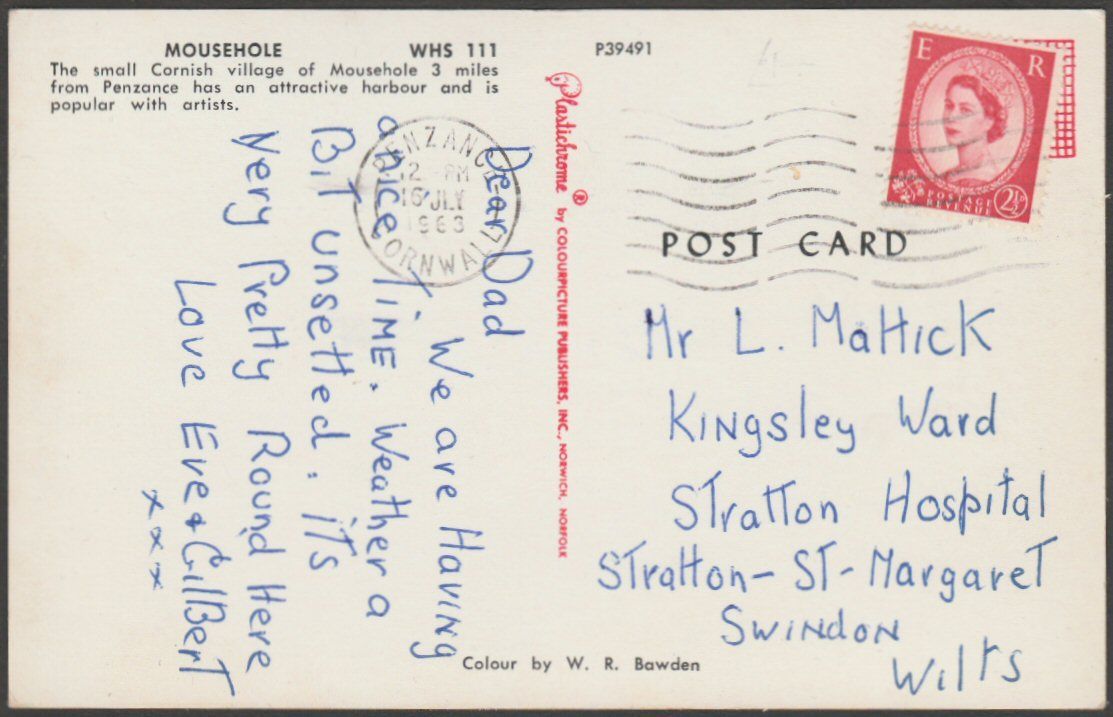 MOUSEHOLE WHS 111
The small Cornish village of Mousehole 3 miles
from Penzance has an attractive harbour and is
popular with artists.
P39491
Dear Dad
We are Having
a nice TIME. Weather a
BiT unsetted. iTs
Very Pretty Round Here
Love Eve & GilBerT
x x x
PENZANCE
12 - PM
16 JLY
1963
CORNWALL
Plastichrome ® by COLOURPICTURE PUBLISHERS, INC., NORWICH, NORFOLK
E R
POSTAGE
REVENUE
2½D
POST CARD
Mr L. Mattick
Kingsley Ward
Stratton Hospital
Stratton-ST-Margaret
Swindon
Wilts
Colour by W. R. Bawden